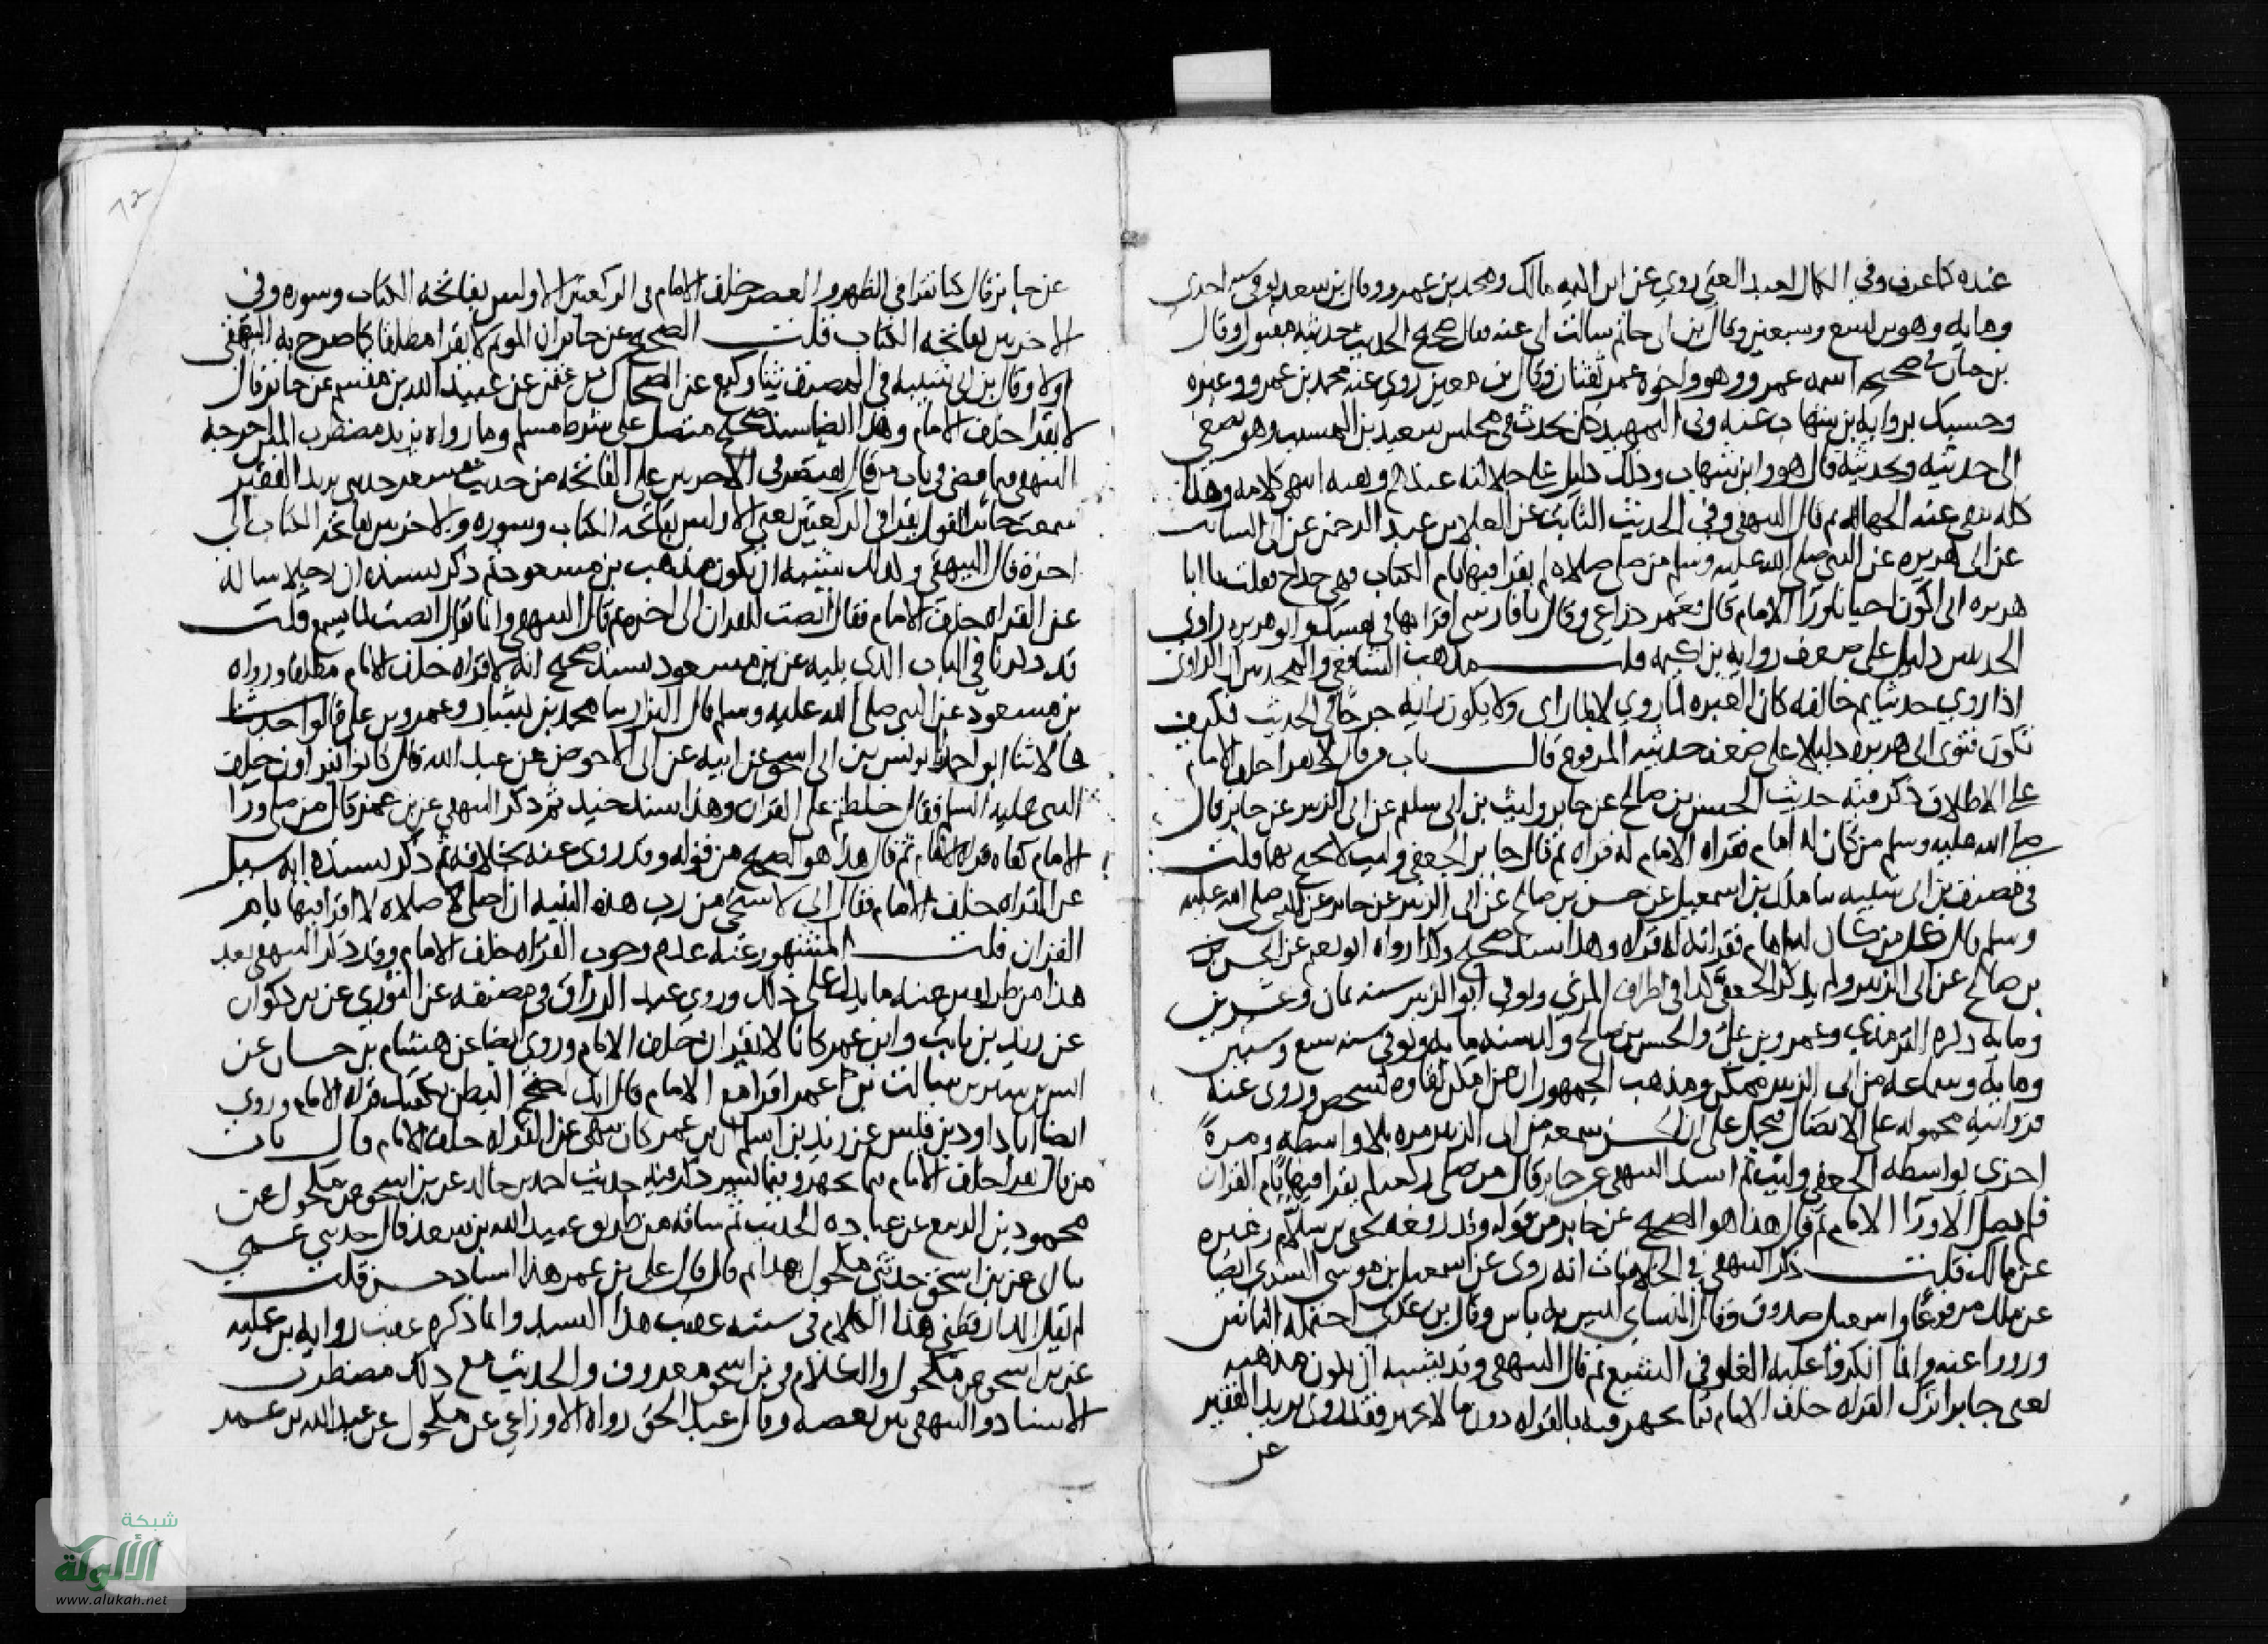 عنده كما عرف وفي الكمال لعبد الغني روى عن ابن اكيمه مالك ومحمد بن عمرو وقال بن سعد توفي سنة احدى
ومايه وهو بن تسع وسبعين وقال بن ابي حاتم سالت ابي عنه فقال صحيح الحديث حديثه مقبول وقال
بن حبان في صحيحه اسمه عمرو وهو واخوه عمر ثقتان وقال بن معين روى عنه محمد بن عمرو وغيره
وحسبك برواية بن شهاب عنه وفي التمهيد كان يحدث في مجلس سعيد بن المسيب وهو يصغي
الى حديثه وبحديثه قال هو وابن شهاب وذلك دليل على جلالته عندهم وثقته انتهى كلامه وهذا
كله ينفي عنه الجهالة ثم قال البيهقي وفي الحديث الثابت عن العلا بن عبد الرحمن عن ابي السائب
عن ابي هريره عن النبي صلى الله عليه وسلم من صلى صلاة لم يقرا فيها بام الكتاب فهي خداج فقلت يا ابا
هريره اني اكون احيانا ورا الامام قال فغمز ذراعي وقال يا فارسي اقرا بها في نفسك وابو هريره راوي
الحديثين دليل على ضعف رواية بن اكيمه قلت مذهب الشافعي والمحدثين ان الراوي
اذا روى حديثا ثم خالفه كان العبره لما روى لا لما راى ولا يكون رايه جرحا في الحديث فكيف
تكون فتوى ابي هريره دليلا على ضعف حديثه المرفوع قال باب من قال لا يقرا خلف الامام
على الاطلاق ذكر فيه حديث الحسن بن صالح عن جابر وليث بن ابي سليم عن ابي الزبير عن جابر قال
صلى الله عليه وسلم من كان له امام فقراه الامام له قراه ثم قال جابر الجعفي وليث لا يحتج بهما قلت
في مصنف بن ابي شيبه نا مالك بن اسمعيل عن حسن بن صالح عن ابي الزبير عن جابر عن النبي صلى الله عليه
وسلم قال كل من كان له امام فقراته له قراه وهذا سند صحيح وكذا رواه ابو نعيم عن الحسن
بن صالح عن ابي الزبير ولم يذكر الجعفي كذا في اطراف المزي وتوفي ابو الزبير سنه ثمان وعشرين
ومايه ذكره الترمذي وعمرو بن علي والحسن بن صالح ولد سنة مايه وتوفي سنه سبع وستين
ومايه وسماعه من ابي الزبير ممكن ومذهب الجمهور ان من امكن لقاوه لشخص وروى عنه
فروايته محموله على الاتصال فيحمل على ان الحسن سمعه من ابي الزبير مره بلا واسطه ومرة
اخرى بواسطه الجعفي وليث ثم اسند البيهقي عن جابر قال من صلى ركعه لم يقرا فيها بام القران
فلم يصل الا ورا الامام ثم قال هذا هو الصحيح عن جابر من قوله وقد رفعه يحيى بن سلام وغيره
عن مالك قلت ذكر البيهقي في الخلافيات انه روى عن اسمعيل بن موسى السدي ايضا
عن مالك مرفوعا واسمعيل صدوق وقال النساي ليس به باس وقال بن عدي احتمله الناس
ورووا عنه وانما انكروا عليه الغلو في التشيع ثم قال البيهقي وقد يشبه ان يكون مذهبه
يعني جابرا ترك القراه خلف الامام فيما يجهر فيه بالقراه دون ما لا يجهر فقد روى يزيد الفقير
عن
عن جابر قال كنا نقرا في الظهر والعصر خلف الامام في الركعتين الاوليين بفاتحة الكتاب وسوره وفي
الاخريين بفاتحه الكتاب قلت الصحيح عن جابر ان الموتم لا يقرا مطلقا كما صرح به البيهقي
اولا وقال بن ابي شيبه في المصنف ثنا وكيع عن الضحاك بن عثمن عن عبيد الله بن مقسم عن جابر قال
لا يقرا خلف الامام وهذا ايضا سند صحيح متصل على شرط مسلم وما رواه يزيد مضطرب المتن اخرجه
البيهقي فيما مضى في باب من قال يقتصر في الاخريين على الفاتحه من حديث مسعر حدثني يزيد الفقير
سمعت جابرا يقول يقرا في الركعتين يعني الاوليين بفاتحه الكتاب وسوره وفي الاخريين بفاتحه الكتاب الى
اخره قال البيهقي وكذلك يشبه ان يكون مذهب بن مسعود ثم ذكر بسنده ان رجلا ساله
عن القراه خلف الامام فقال انصت للقران الى اخره ثم قال البيهقي وانما يقال انصت لما يسمع قلت
قد ذكرنا في الباب الذي يليه عن بن مسعود بسند صحيح انه لا قراه خلف الامام مطلقا ورواه
بن مسعود عن النبي صلى الله عليه وسلم قال البزار نا محمد بن بشار وعمرو بن علي قالوا حدثنا
قالا ثنا ابو احمد انا يونس بن ابي اسحق عن ابيه عن ابي الاحوص عن عبد الله قال كانوا يقراون خلف
النبي عليه السلام فقال خلطتم علي القران وهذا سند جيد ثم ذكر البيهقي عن بن عمر قال من صلى ورا
الامام كفاه قراه الامام ثم قال هذا هو الصحيح من قوله وقد روى عنه بخلافه ثم ذكر بسنده انه سيل
عن القراه خلف الامام فقال اني لاستحي من رب هذه البنيه ان اصلي صلاه لا اقرا فيها بام
القران قلت المشهور عنه عدم وجوب القراه خلف الامام وقد ذكر البيهقي بعد
هذا من طريقين عنه ما يدل على ذلك وروى عبد الرزاق في مصنفه عن الثوري عن بن ذكوان
عن زيد بن ثابت وابن عمر كانا لا يقران خلف الامام وروى ايضا عن هشام بن حسان عن
انس بن سيرين سالت بن عمر اقرا مع الامام قال انك لضخم البطن تكفيك قراه الامام وروى
ايضا انا داود بن قيس عن زيد بن اسلم ان بن عمر كان ينهى عن القراه خلف الامام قال باب
من قال يقرا خلف الامام فيما يجهر وفيما يسر ذكر فيه حديث احمد بن خالد عن بن اسحق عن مكحول عن
محمود بن الربيع عن عباده الحديث ثم ساقه من طريق عبيد الله بن سعد قال حدثني عمي
نا ابي عن بن اسحق حدثني مكحول بهذا ثم قال قال علي بن عمر هذا اسناد حسن قلت
لم يقل الدارقطني هذا الكلام في سننه عقيب هذا السند وانما ذكره عقيب رواية بن عليه
عن بن اسحق عن مكحول والكلام في بن اسحق معروف والحديث مع ذلك مضطرب
الاسناد والبيهقي بين بعضه وقال عبد الحق رواه الاوزاعي عن مكحول عن عبد الله بن عمر
شبكة
الألوكة
www.alukah.net